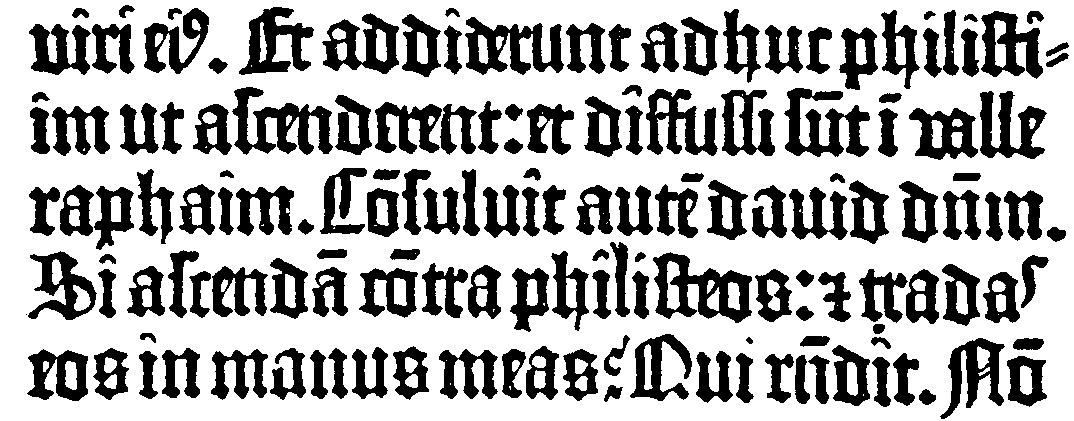 viri eiꝰ. Et addiderunt adhuc philisti⸗
im ut ascenderent: et diffusi sūt ī valle
raphaim. Cōsuluit autē david dn̄m.
Si ascendā cōtra philisteos: ⁊ tradas
eos in manus meas? Qui rn̄dit. Nō